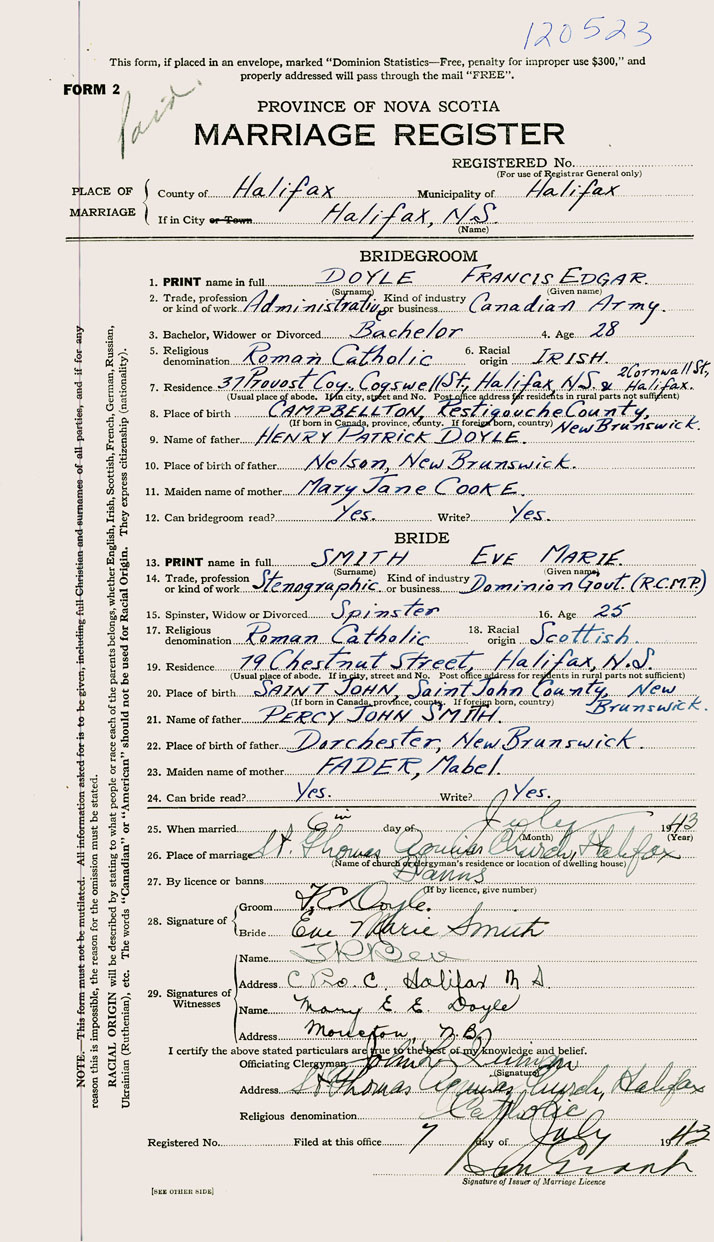 120523
This form, if placed in an envelope, marked "Dominion Statistics—Free, penalty for improper use $300," and
properly addressed will pass through the mail "FREE".
FORM 2
Paid.
PROVINCE OF NOVA SCOTIA
MARRIAGE REGISTER
REGISTERED No.
(For use of Registrar General only)
PLACE OF MARRIAGE
County of Halifax Municipality of Halifax
If in City or Town Halifax, N.S.
(Name)
BRIDEGROOM
1. PRINT name in full DOYLE FRANCIS EDGAR.
(Surname) (Given name)
2. Trade, profession or kind of work Administrative Kind of industry or business Canadian Army.
3. Bachelor, Widower or Divorced Bachelor 4. Age 28
5. Religious denomination Roman Catholic 6. Racial origin IRISH.
7. Residence 37 Provost Coy. Cogswell St, Halifax, N.S. & 2 Cornwall St, Halifax.
(Usual place of abode. If in city, street and No. Post office address for residents in rural parts not sufficient)
8. Place of birth CAMPBELLTON, Restigouche County, New Brunswick.
(If born in Canada, province, county. If foreign born, country)
9. Name of father HENRY PATRICK DOYLE.
10. Place of birth of father Nelson, New Brunswick.
11. Maiden name of mother Mary Jane COOKE.
12. Can bridegroom read? Yes. Write? Yes.
BRIDE
13. PRINT name in full SMITH EVE MARIE.
(Surname) (Given name)
14. Trade, profession or kind of work Stenographic Kind of industry or business Dominion Govt. (R.C.M.P.)
15. Spinster, Widow or Divorced Spinster 16. Age 25
17. Religious denomination Roman Catholic 18. Racial origin Scottish.
19. Residence 79 Chestnut Street, Halifax, N.S.
(Usual place of abode. If in city, street and No. Post office address for residents in rural parts not sufficient)
20. Place of birth SAINT JOHN, Saint John County, New Brunswick.
(If born in Canada, province, county. If foreign born, country)
21. Name of father PERCY JOHN SMITH.
22. Place of birth of father Dorchester, New Brunswick.
23. Maiden name of mother FADER, Mabel.
24. Can bride read? Yes. Write? Yes.
25. When married day of July 1943
(Month) (Year)
26. Place of marriage St. Thomas Aquinas Church, Halifax
(Name of church or clergyman's residence or location of dwelling house)
27. By licence or banns Banns
(If by licence, give number)
28. Signature of
Groom F.E. Doyle.
Bride Eve Marie Smith
29. Signatures of Witnesses
Name
Address C Pro. C. Halifax N S.
Name Mary E. E. Doyle
Address Moncton, N.B.
I certify the above stated particulars are true to the best of my knowledge and belief.
Officiating Clergyman John
(Signature)
Address St Thomas Aquinas Church, Halifax
Religious denomination Catholic
Registered No. Filed at this office 7 day of July 1943
Signature of Issuer of Marriage Licence
[SEE OTHER SIDE]
NOTE.—This form must not be mutilated. All information asked for is to be given, including full Christian and surnames of all parties, and if for any
reason this is impossible, the reason for the omission must be stated.
RACIAL ORIGIN will be described by stating to what people or race each of the parents belongs, whether English, Irish, Scottish, French, German, Russian,
Ukrainian (Ruthenian), etc. The words "Canadian" or "American" should not be used for Racial Origin. They express citizenship (nationality).